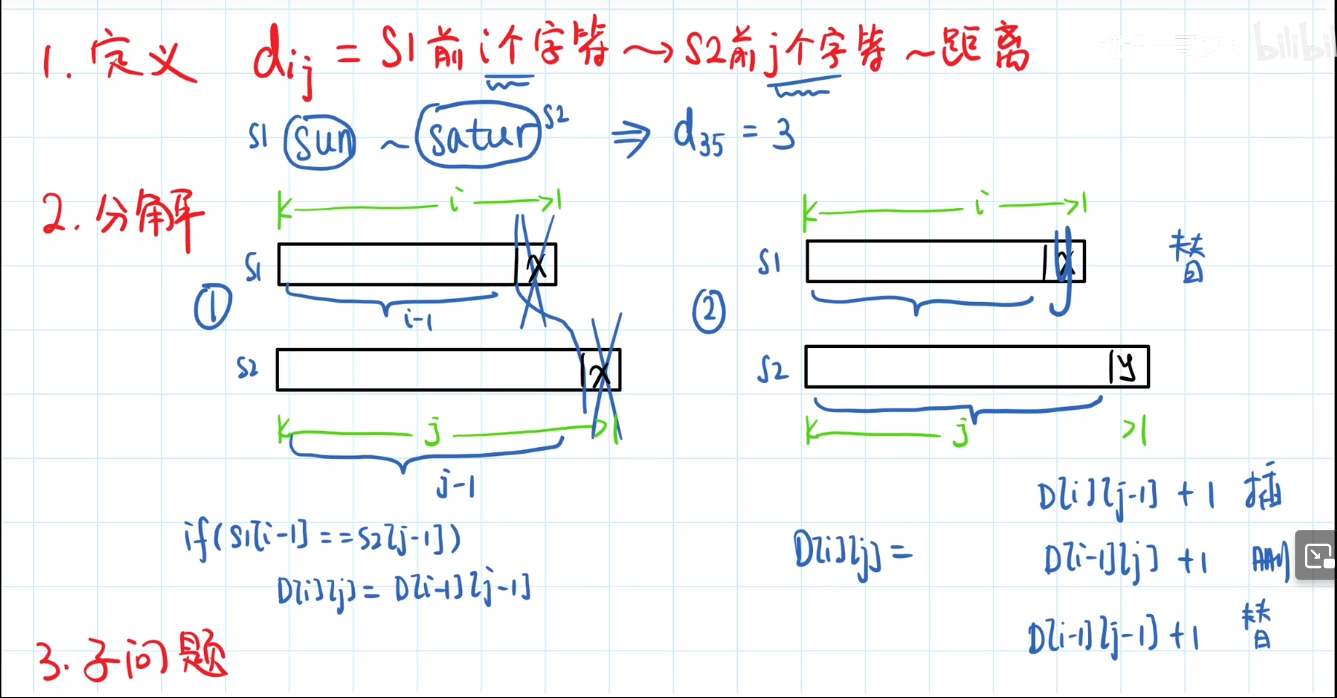 bilibili
1. 定义 dij = S1前i个字符 ~> S2前j个字符 ~距离
S1 sun ~ satur S2 => d35 = 3
2. 分解
①
i
S1 x
i-1
S2 x
j
j-1
if(S1[i-1]==S2[j-1])
D[i][j] = D[i-1][j-1]
②
i
S1 x 替
S2 y
j
D[i][j] =
D[i][j-1] + 1 插
D[i-1][j] + 1 删
D[i-1][j-1] + 1 替
3. 子问题